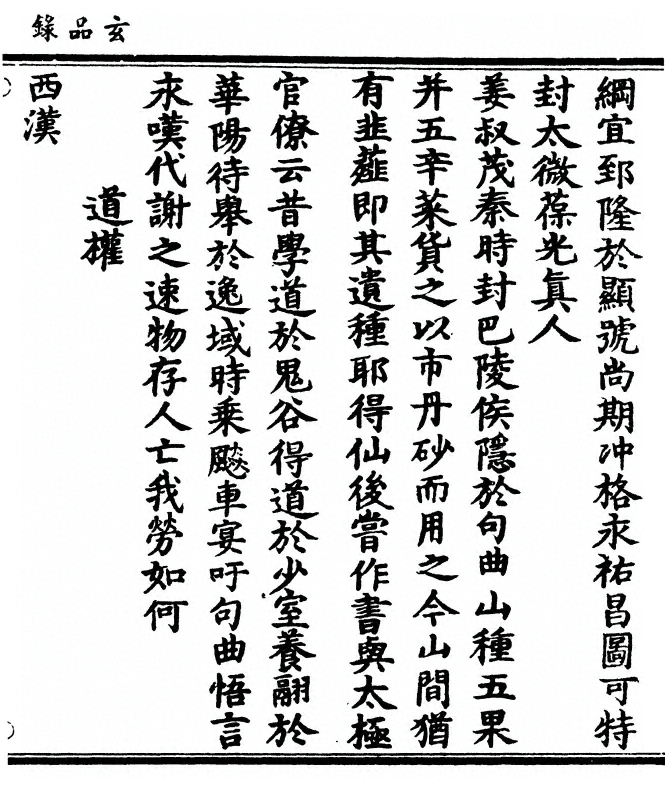 玄品錄
綱宜郅隆於顯號尚期冲格永祐昌圖可特
封太微葆光眞人
姜叔茂秦時封巴陵侯隱於句曲山種五果
并五辛菜貨之以市丹砂而用之今山間猶
有韭薤即其遺種耶得仙後嘗作書與太極
官僚云昔學道於鬼谷得道於少室養翮於
華陽待舉於逸域時乘飈車宴吁句曲悟言
永嘆代謝之速物存人亡我勞如何
道權
西漢